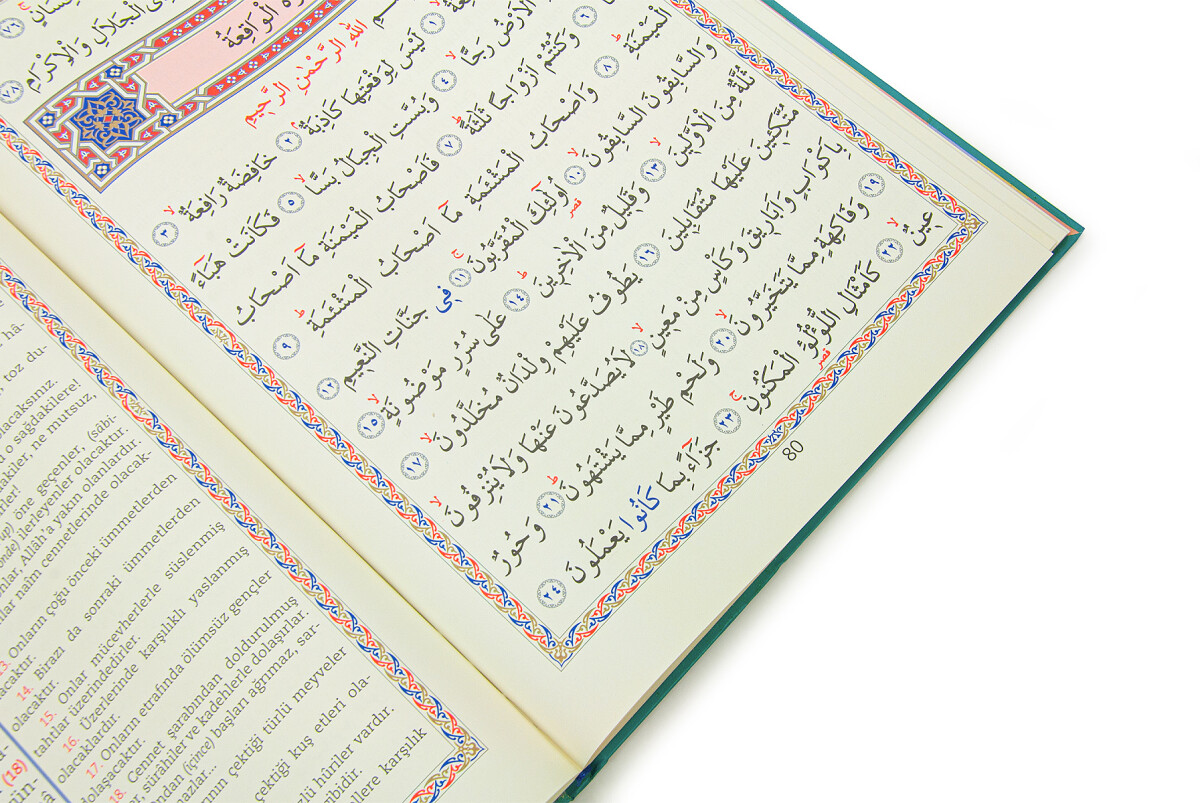 سَانٍ ﴿٧٦﴾
ذِى الْجَلَالِ وَالْاِكْرَامِ ﴿٧٨﴾
الْوَاقِعَةُ
اللّٰهِ الرَّحْمٰنِ الرَّح۪يمِ
﴿١﴾ لَيْسَ لِوَقْعَتِهَا كَاذِبَةٌ ﴿٢﴾ خَافِضَةٌ رَافِعَةٌ ﴿٣﴾
الْاَرْضُ رَجًّا ﴿٤﴾ وَبُسَّتِ الْجِبَالُ بَسًّا ﴿٥﴾ فَكَانَتْ هَبَٓاءً
﴿٦﴾ وَكُنْتُمْ اَزْوَاجًا ثَلٰثَةً ﴿٧﴾ فَاَصْحَابُ الْمَيْمَنَةِ مَٓا اَصْحَابُ
الْمَيْمَنَةِ ﴿٨﴾ وَاَصْحَابُ الْمَشْـَٔمَةِ مَٓا اَصْحَابُ الْمَشْـَٔمَةِ ﴿٩﴾
وَالسَّابِقُونَ السَّابِقُونَ ﴿١٠﴾ اُو۬لٰٓئِكَ الْمُقَرَّبُونَ ﴿١١﴾ ف۪ى جَنَّاتِ النَّع۪يمِ ﴿١٢﴾
ثُلَّةٌ مِنَ الْاَوَّل۪ينَ ﴿١٣﴾ وَقَل۪يلٌ مِنَ الْاٰخِر۪ينَ ﴿١٤﴾ عَلٰى سُرُرٍ مَوْضُونَةٍ ﴿١٥﴾
مُتَّكِـ۪ٔينَ عَلَيْهَا مُتَقَابِل۪ينَ ﴿١٦﴾ يَطُوفُ عَلَيْهِمْ وِلْدَانٌ مُخَلَّدُونَ ﴿١٧﴾
بِاَكْوَابٍ وَاَبَار۪يقَ وَكَأْسٍ مِنْ مَع۪ينٍ ﴿١٨﴾ لَا يُصَدَّعُونَ عَنْهَا وَلَا يُنْزِفُونَ
﴿١٩﴾ وَفَاكِهَةٍ مِمَّا يَتَخَيَّرُونَ ﴿٢٠﴾ وَلَحْمِ طَيْرٍ مِمَّا يَشْتَهُونَ ﴿٢١﴾ وَحُورٌ
ع۪ينٌ ﴿٢٢﴾ كَاَمْثَالِ اللُّؤْلُؤِ الْمَكْنُونِ ﴿٢٣﴾ جَزَٓاءً بِمَا كَانُوا يَعْمَلُونَ ﴿٢٤﴾
80
hâ-
toz du-
olacaksınız.
o sağdakilere!
dakiler, ne mutsuz,
rler!
up) öne geçenler, (sâbir
nde) ilerleyenler olacaktır.
nlar, Allâh'a yakın olanlardır.
lar naîm cennetlerinde olacak-
13. Onların çoğu önceki ümmetlerden
acaktır.
14. Birazı da sonraki ümmetlerden
olacaktır.
15. Onlar mücevherlerle süslenmiş
tahtlar üzerindedirler.
16. Üzerlerinde karşılıklı yaslanmış
olacaklardır.
17. Onların etrafında ölümsüz gençler
dolaşacaktır.
18. Cennet şarabından doldurulmuş
er, sürâhiler ve kadehlerle dolaşırlar.
Ondan (içince) başları ağrımaz, sar-
mazlar...
nının çektiği türlü meyveler
çektiği kuş etleri ola-
zlü hûriler vardır.
ibidir.
llere karşılık
(18)